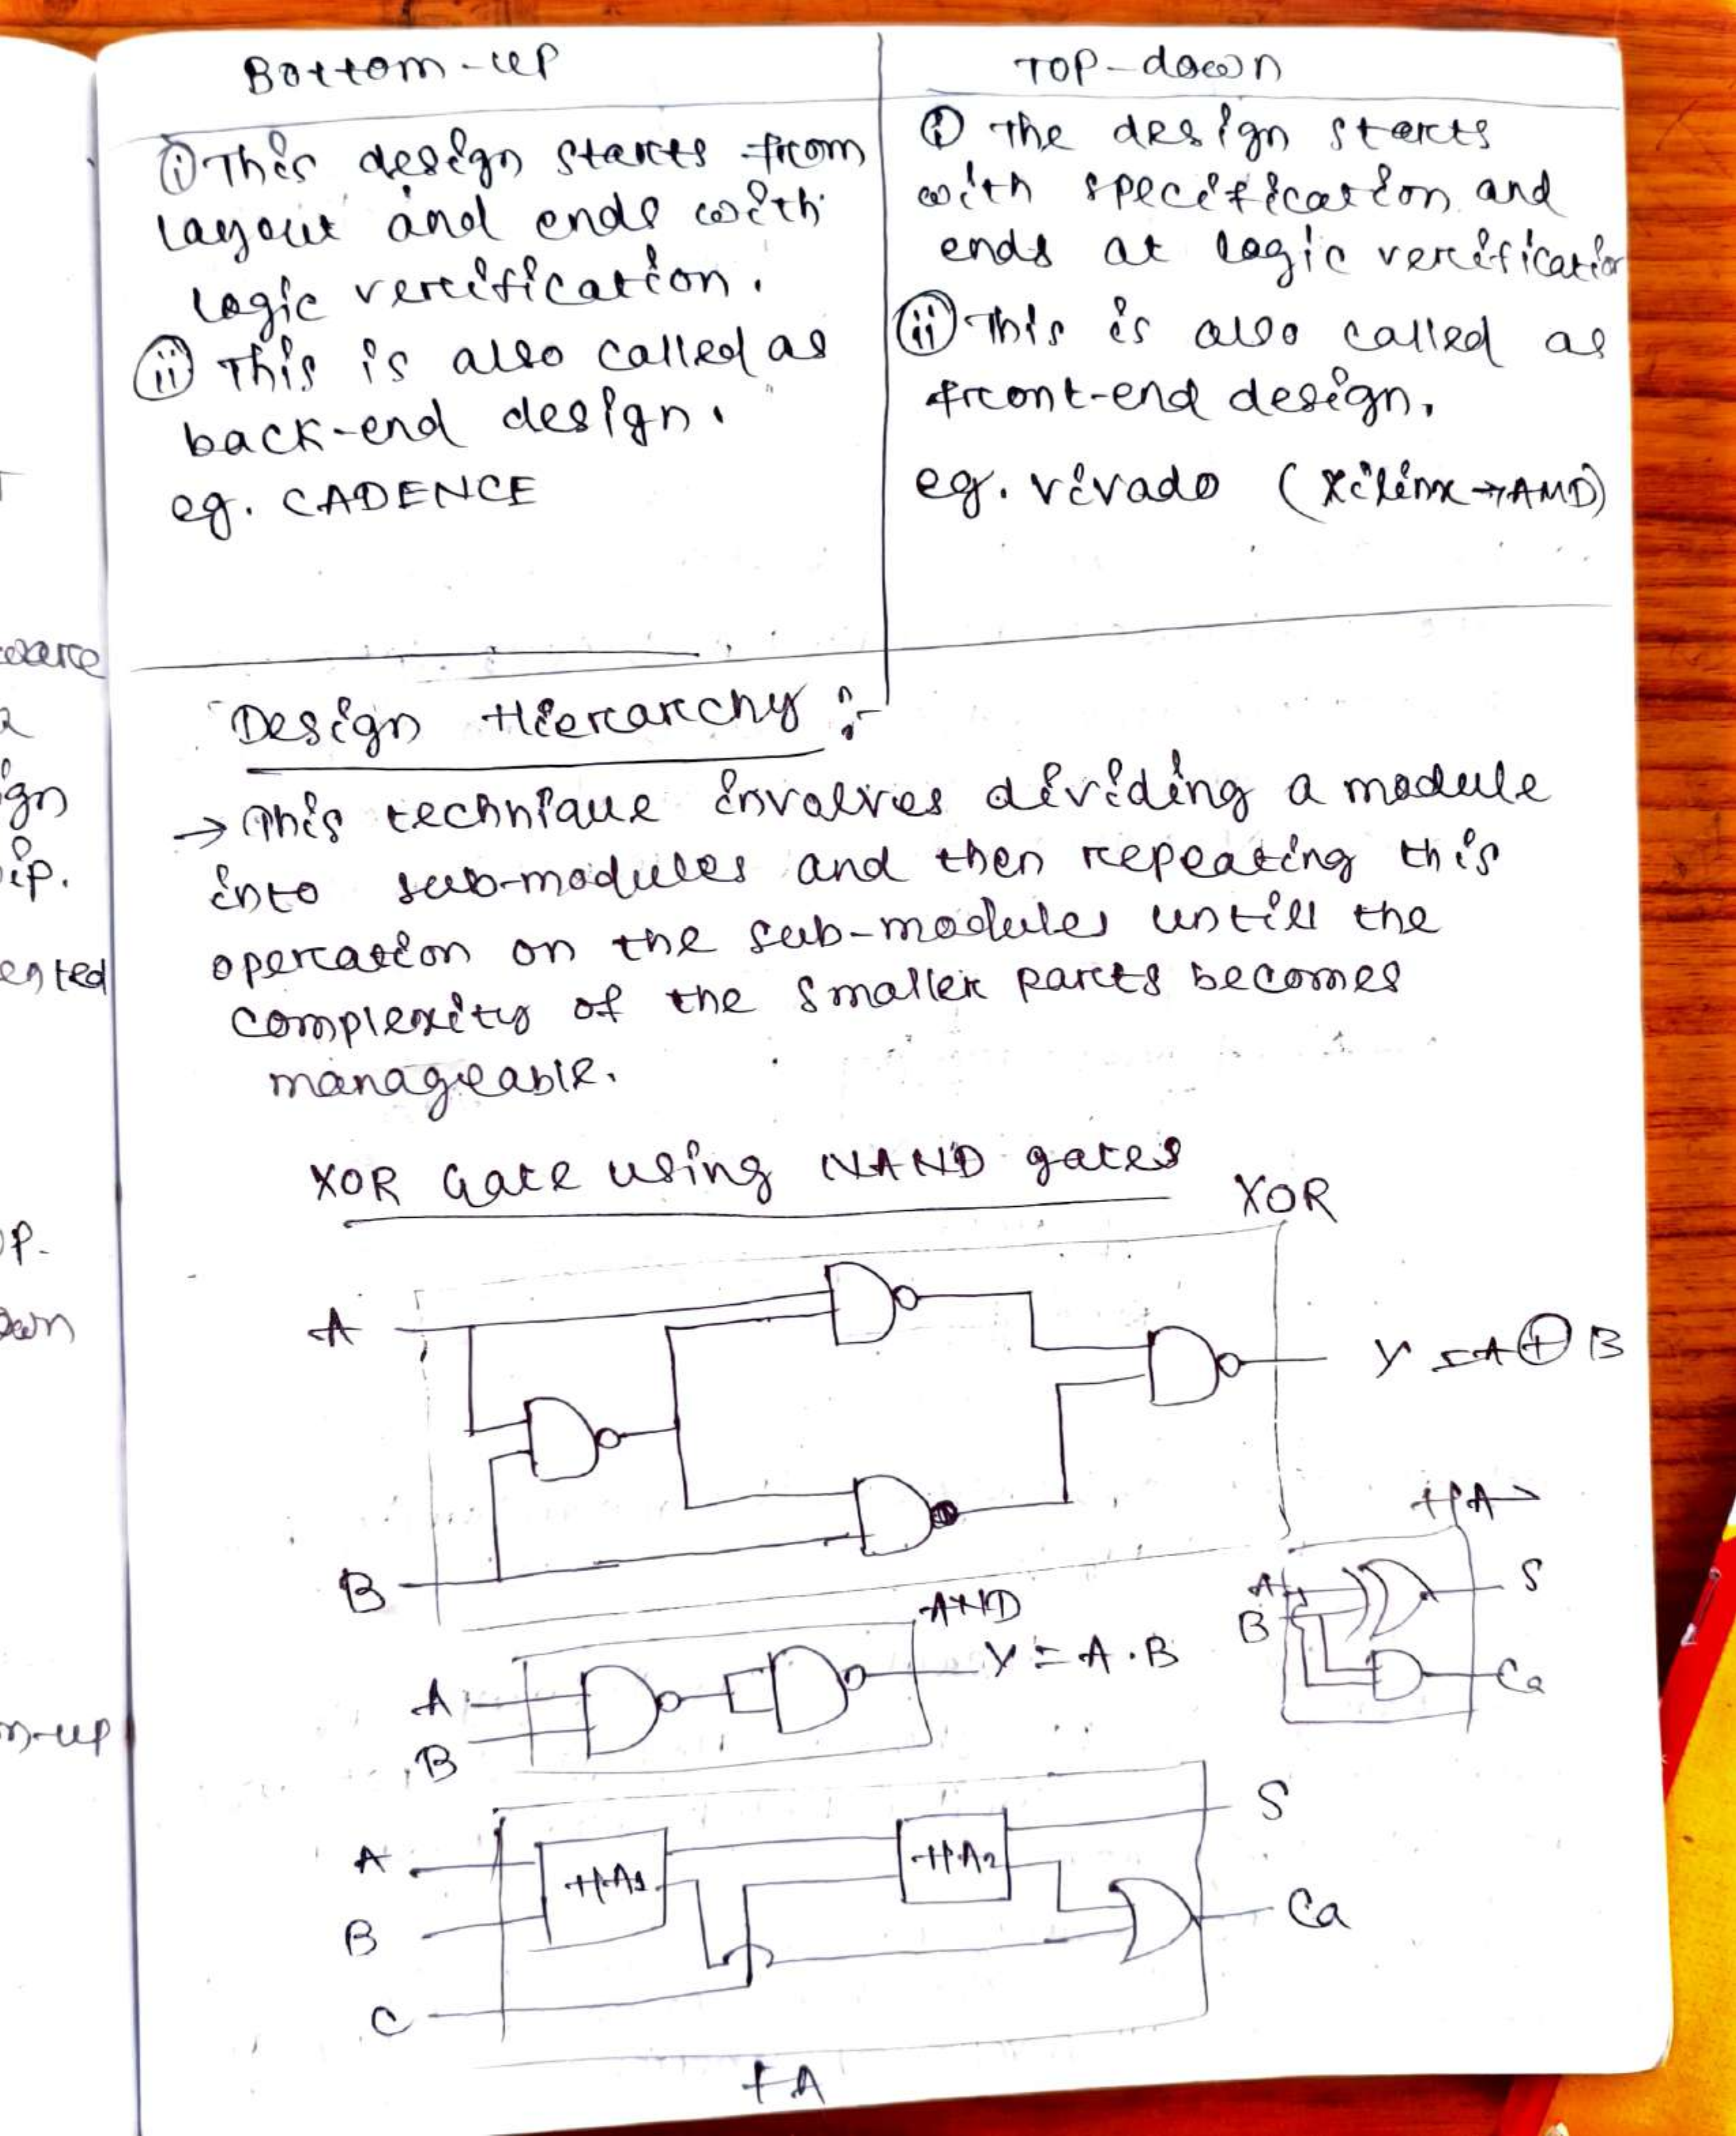 Bottom-up
(i) This design starts from
layout and ends with
logic verification.
(ii) This is also called as
back-end design.
eg. CADENCE
TOP-down
(i) The design starts
with specification and
ends at logic verification
(ii) This is also called as
front-end design.
eg. vivado (Xilinx → AMD)
Design Hierarchy :-
→ This technique involves dividing a module
into sub-modules and then repeating this
operation on the sub-modules untill the
complexity of the smaller parts becomes
manageable.
XOR Gate using NAND gates
XOR
A
Y = A ⊕ B
B
HA
A
B
S
Ca
AND
A
B
Y = A . B
A
B
C
HA1
HA2
S
Ca
FA
ware
gn
ip.
ented
op-
own
m-up